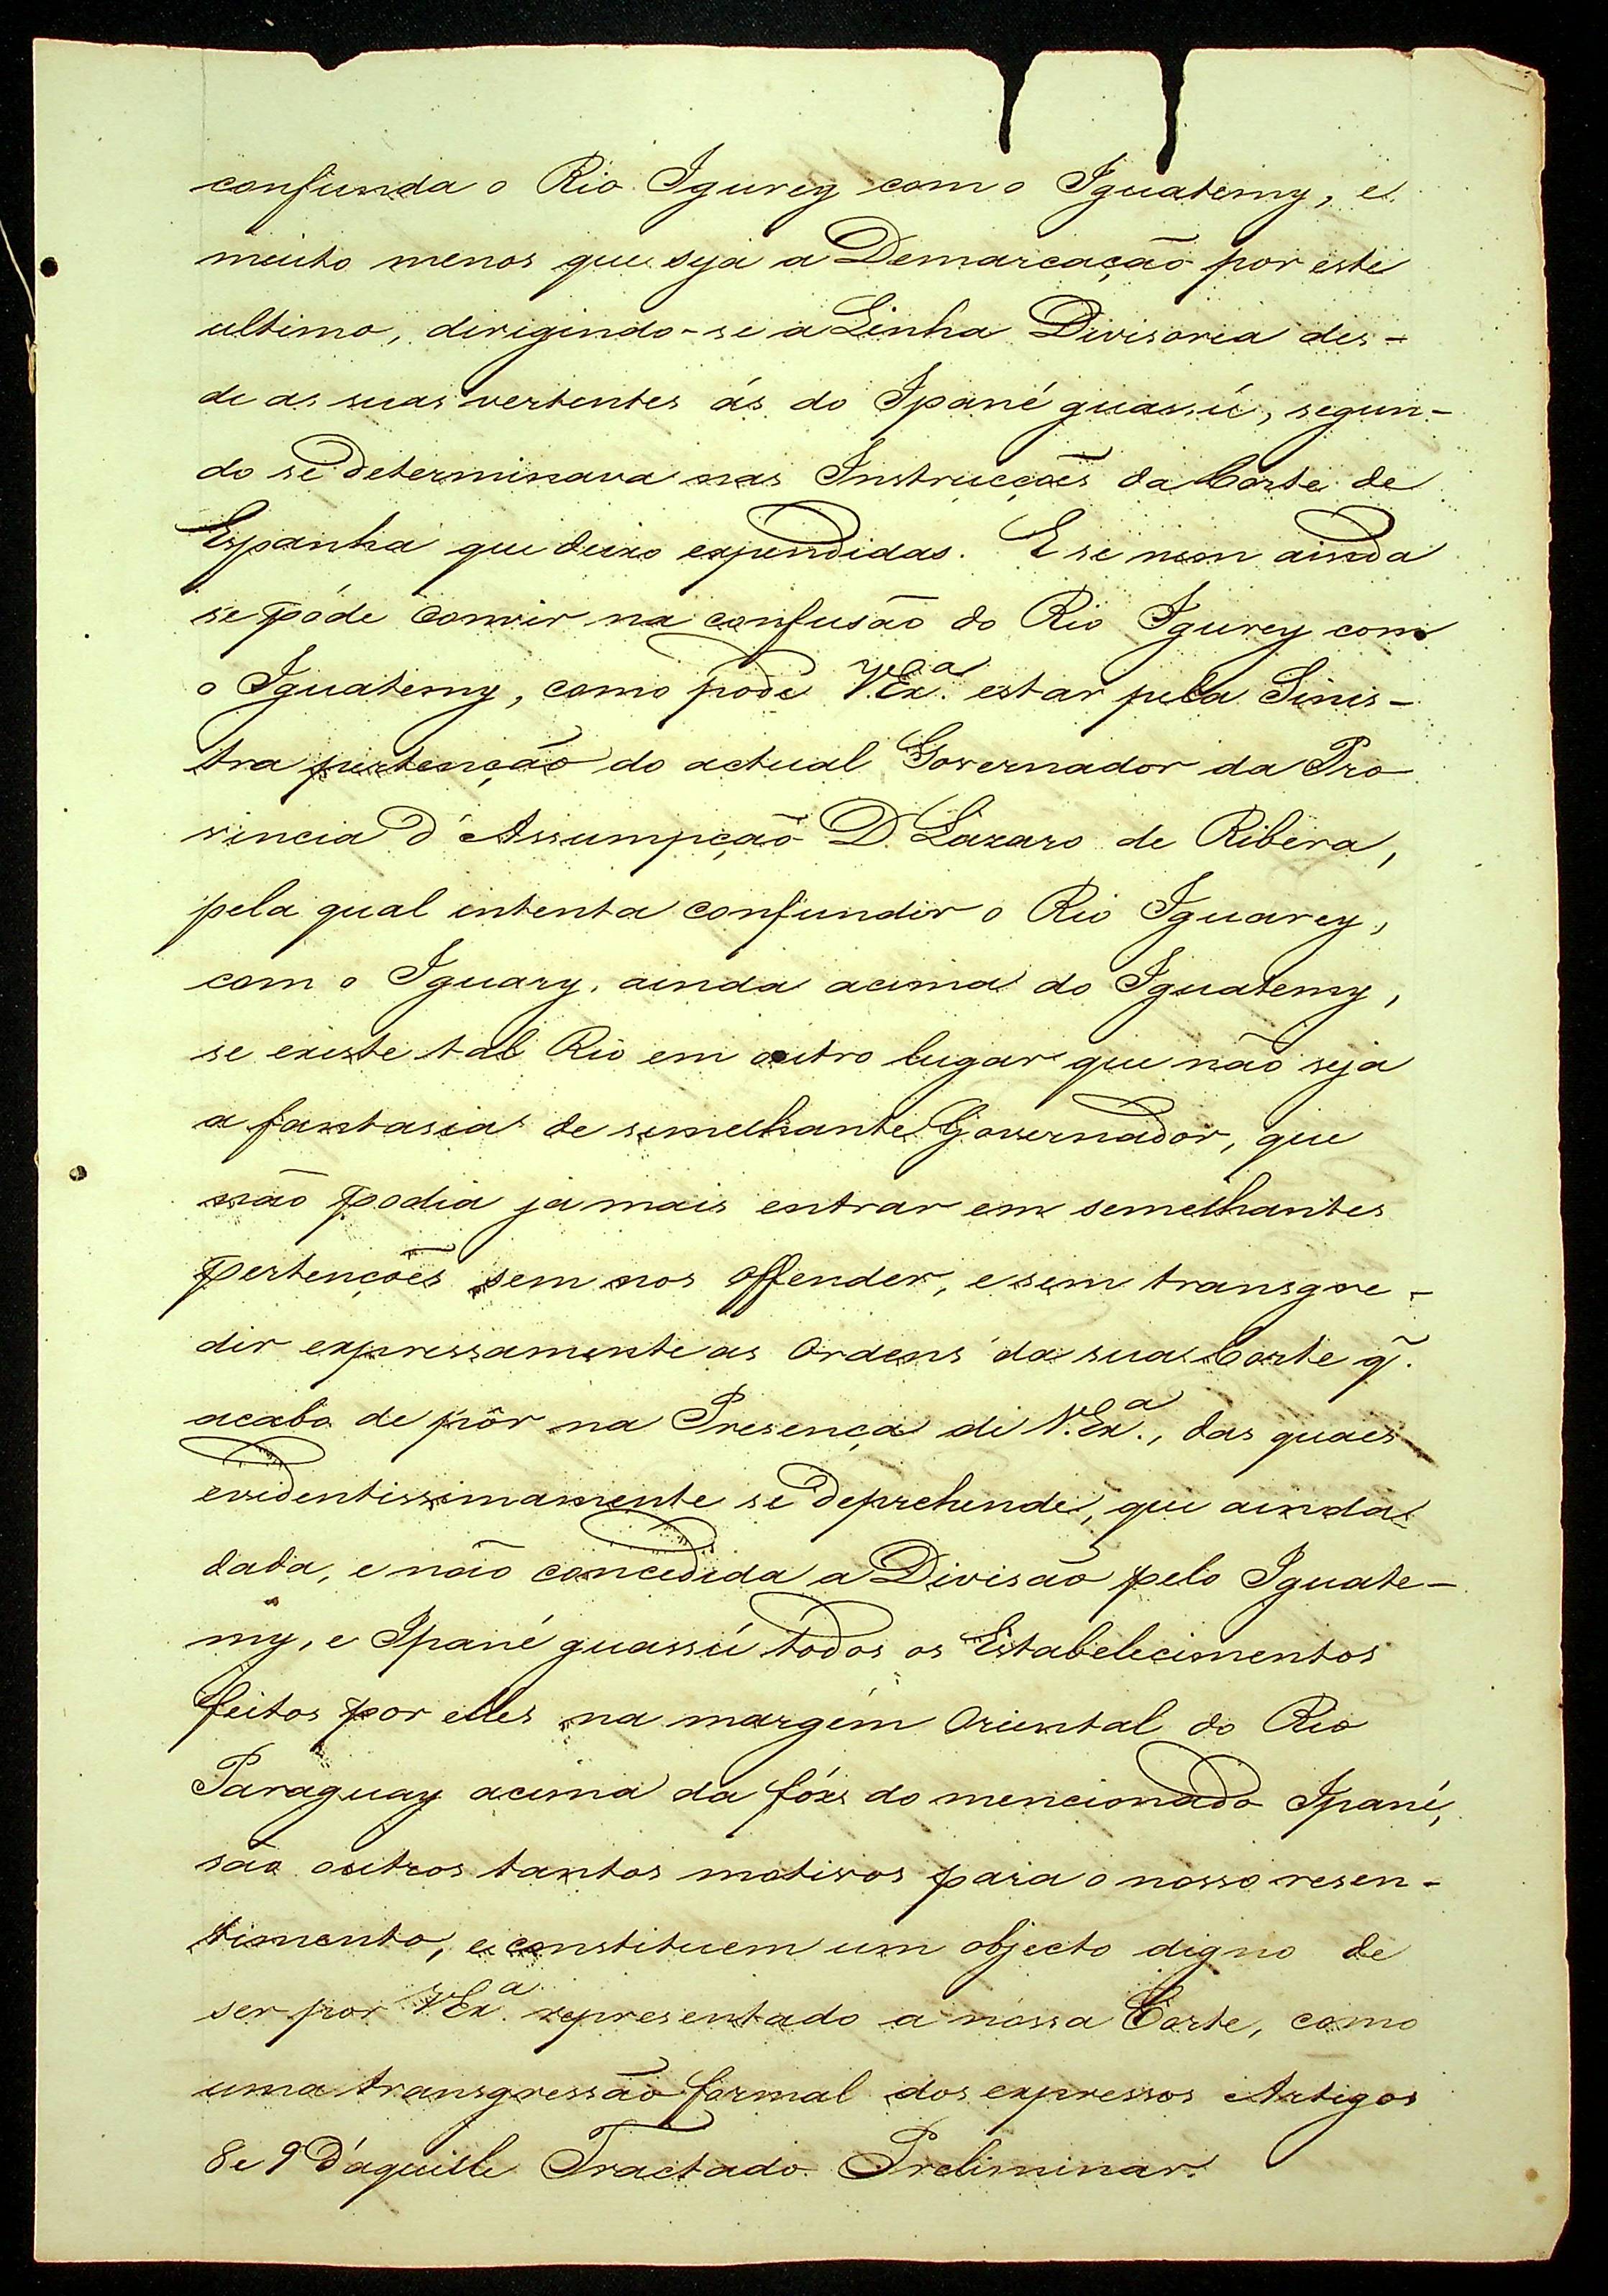 confunda o Rio Igurey com o Iguatemy, e
muito menos que seja a Demarcação por este
ultimo, dirigindo-se a Linha Divisoria des-
de as suas vertentes ás do Ipané guassú, segun-
do se determinava nas Instrucções da Corte de
Espanha que deixo expendidas. E se nem ainda
se póde convir na confusão do Rio Igurey com
o Iguatemy, como pode V.Exª. estar pela Sinis-
tra pertenção do actual Governador da Pro
vincia d'Assumpção D. Lazaro de Ribera,
pela qual intenta confundir o Rio Iguarey,
com o Iguary, ainda acima do Iguatemy,
se existe tal Rio em outro lugar que não seja
a fantasia de semelhante Governador, que
não podia ja mais entrar em semelhantes
pertenções sem nos offender, e sem transgre-
dir expressamente as Ordens da sua Corte q̃.
acabo de pôr na Presença de V.Exª., das quaes
evidentissimamente se deprehende, que ainda
dada, e não concedida a Divisão pelo Iguate-
my, e Ipané guassú todos os Estabelecimentos
feitos por elles na margem Oriental do Rio
Paraguay acima da fóz do mencionado Ipané,
são outros tantos motivos para o nosso resen-
timento, e constituem um objecto digno de
ser por V.Exª. representado a nossa Corte, como
uma transgressão formal dos expressos Artigos
8 e 9 D'aquelle Tractado Preliminar.